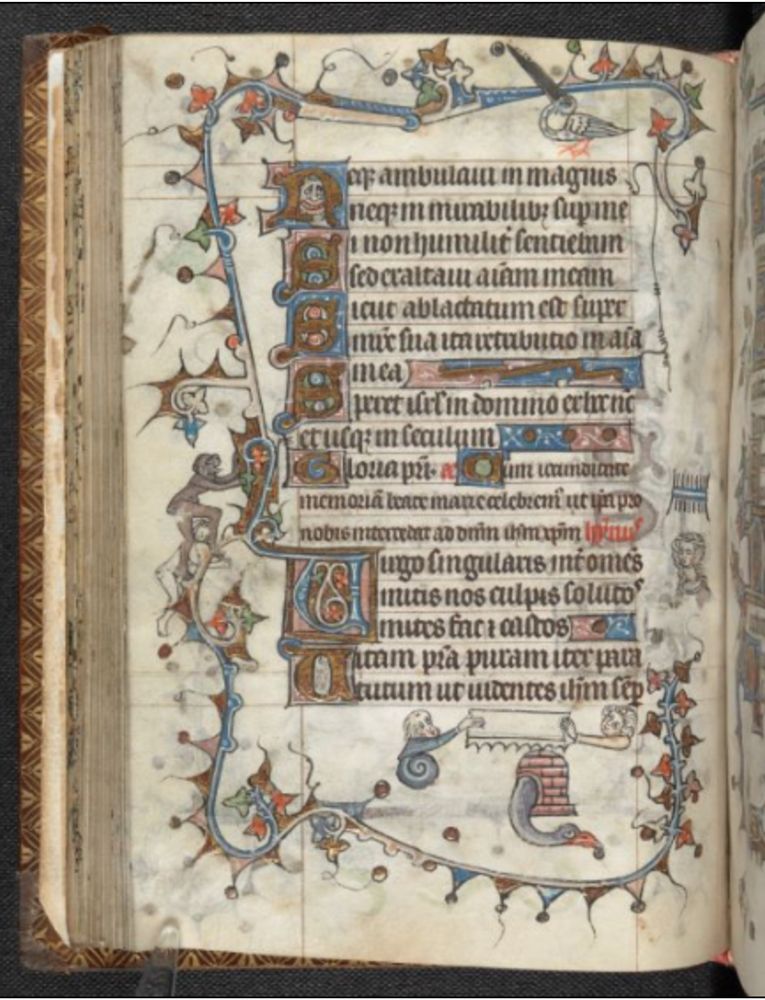 Neq; ambulaui in magnis
neq; in mirabilib; sup me
Si non humilit' sentiebam
sed exaltaui aīam meam
Sicut ablactatum est supe
mr̄e sua ita retributio in aīa
mea
Speret isr̄l in domino ex hoc nc̄
et usq; in seculum
Gloria pr̄i. a Cum iocunditate
memoriā beate marie celebrem' ut ip̄a pro
nobis intercedat ad dn̄m ih̄m xp̄m hȳnus
Uirgo singularis int' omēs
mitis nos culpis soluto'
mites fac ⁊ castos
Uitam pr̄a puram iter para
tutum ut uidentes ih̄m sēp